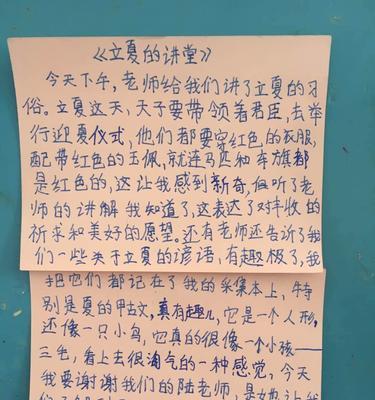 《立夏的讲堂》
今天下午，老师给我们讲了立夏的习
俗。立夏这天，天子要带领着君臣，去举
行迎夏仪式，他们都要穿红色的衣服，
配带红色的玉佩，就连马匹和车旗都
是红色的，这让我感到新奇，但听了老
师的讲解我知道了，这表达了对丰收的
祈求和美好的愿望。还有老师还告诉了我
们一些关于立夏的谚语，有趣极了，我
把它们都记在了我的采集本上，特
别是夏的甲古文，真有趣儿，它是一个人形，
还像一只小鸟，它真的很像一个小孩——
三毛，看上去很淘气的一种感觉，今天
我要谢谢我们的陆老师，是她让我